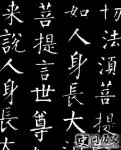 切法湏菩提
如人身長大
菩提言世尊
来說人身長大